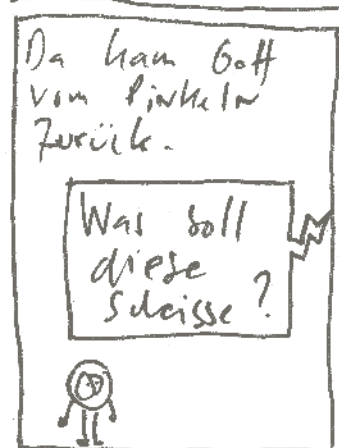 Da kam Gott
vom Pinkeln
zurück.
Was soll
diese
Scheisse?